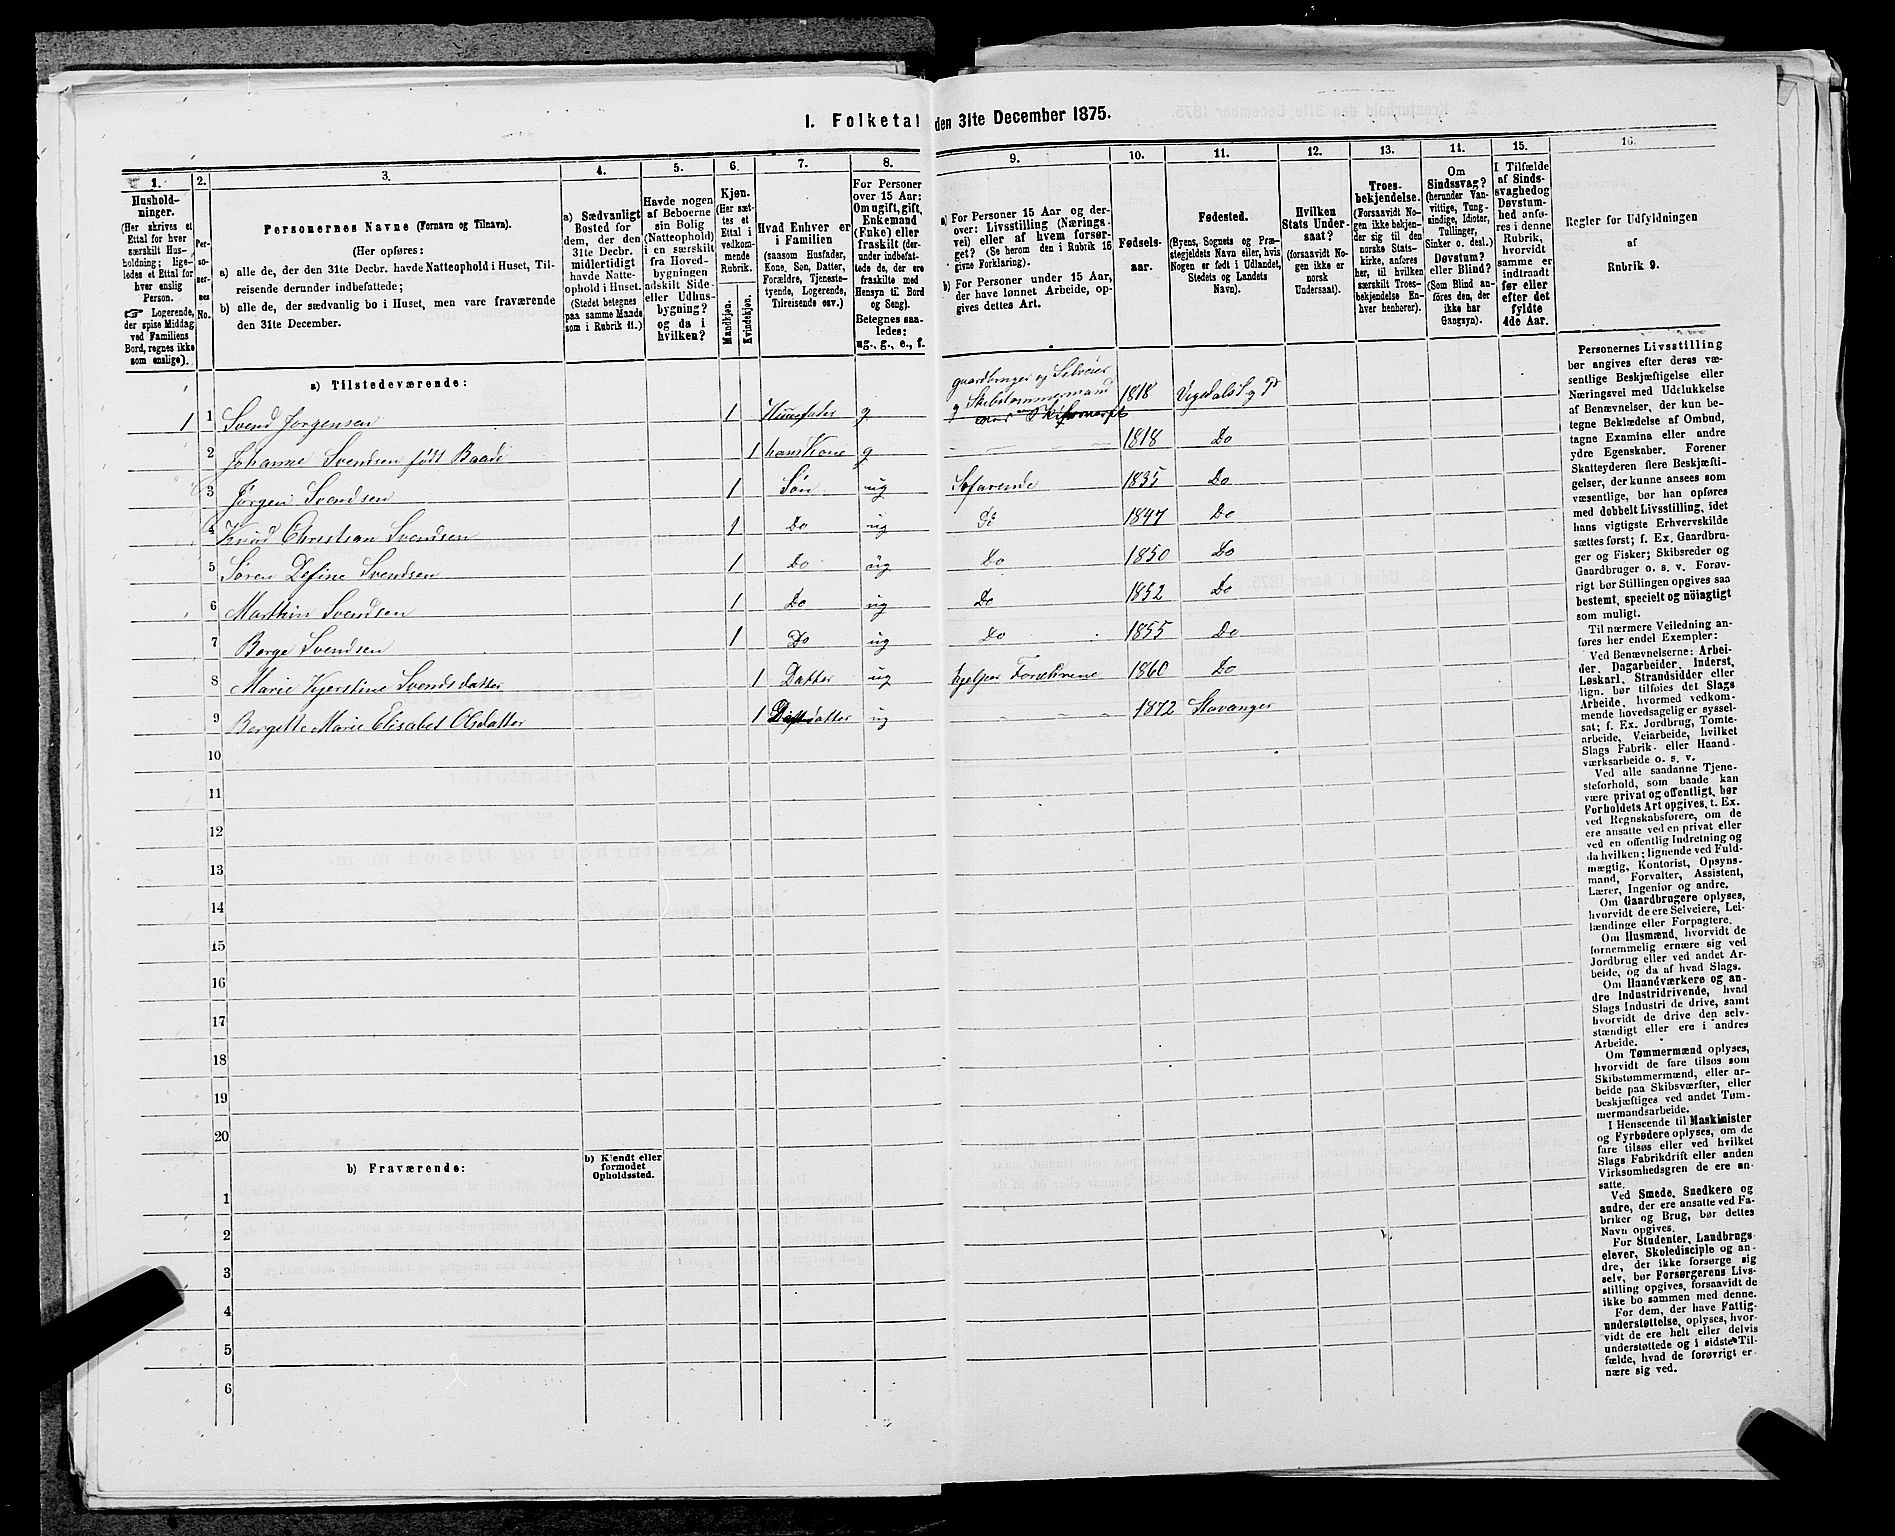 I. Folketal den 31te December 1875.
1.
2.
3.
4.
5.
6.
7.
8.
9.
10.
11.
12.
13.
14.
15.
16.
Husholdninger.
(Her skrives et
Ettal for hver
særskilt Husholdning;
ligeledes et Ettal for
hver enslig
Person.
☞ Logerende,
der spise Middag
ved Familiens
Bord, regnes ikke
som enslige).
Personernes No.
Personernes Navne (Fornavn og Tilnavn).
(Her opføres:
a) alle de, der den 31te Decbr. havde Natteophold i Huset, Tilreisende derunder indbefattede;
b) alle de, der sædvanlig bo i Huset, men vare fraværende
den 31te December.
a) Sædvanligt
Bosted for
dem, der den
31te Decbr.
midlertidigt
havde Natteophold i Huset.
(Stedet betegnes
paa samme Maade
som i Rubrik 11.)
Havde nogen
af Beboerne
sin Bolig
(Natteophold)
i en særskilt
fra Hovedbygningen
adskilt Side-
eller Udhusbygning?
og da i
hvilken?
Kjøn.
(Her sættes et
Ettal i
vedkommende
Rubrik.
Mandkjøn.
Kvindekjøn.
Hvad Enhver er
i Familien
(saasom Husfader,
Kone, Søn, Datter,
Forældre, Tjenestetyende, Logerende,
Tilreisende osv.)
For Personer
over 15 Aar:
Om ugift, gift,
Enkemand
(Enke) eller
fraskilt (derunder indbefattede de, der ere
fraskilte med
Hensyn til Bord
og Seng).
Betegnes saaledes:
ug., g., e., f.
a) For Personer 15 Aar og derover: Livsstilling (Næringsvei) eller af hvem forsørget? (Se herom den i Rubrik 16
givne Forklaring).
b) For Personer under 15 Aar,
der have lønnet Arbeide, opgives dettes Art.
Fødselsaar.
Fødested.
(Byens, Sognets og Præstegjeldets Navn eller, hvis
Nogen er født i Udlandet,
Stedets og Landets
Navn).
Hvilken
Stats Undersaat?
(forsaavidt Nogen ikke er
norsk
Undersaat).
Troesbekjendelse.
(Forsaavidt Nogen ikke bekjender sig til
den norske Statskirke, anføres
her, til hvilken
særskilt Troesbekjendelse Enhver henhører).
Om
Sindssvag?
(herunder Vanvittige, Tungsindige, Idioter,
Tullinger,
Sinker o. desl.)
Døvstum?
eller Blind?
(Som Blind anføres den, der
ikke har
Gangsyn).
I Tilfælde
af Sindssvaghed og
Døvstumhed anføres i denne
Rubrik,
hvorvidt
samme er
indtraadt
før eller
efter det
fyldte
4de Aar.
Regler for Udfyldningen
af
Rubrik 9.
a) Tilstedeværende:
gaardbruger og Selveier
1 1 Svend Jørgensen 1 Huusfader g og Skibstømmermand 1818 Vigedals
2 Johanne Svendsen født Baade 1 hans Kone g 1818 Do
3 Jørgen Svendsen 1 Søn ug Søfarende 1835 Do
4 Knud Christian Svendsen 1 Do ug Do 1847 Do
5 Søren Define Svendsen 1 Do ug Do 1850 Do
6 Marthin Svendsen 1 Do ug Do 1852 Do
7 Børge Svendsen 1 Do ug Do 1855 Do
8 Marie Kjerstine Svendsdatter 1 Datter ug hjelper Forældrene 1860 Do
9 Bergitte Marie Elisabet Olsdatter 1 ug 1872 Stavanger
10
11
12
13
14
15
16
17
18
19
20
b) Fraværende:
b) Kjendt eller
formodet
Opholdssted.
1
2
3
4
5
6
Personernes Livsstilling
bør angives efter deres væsentlige Beskjæftigelse eller
Næringsvei med Udelukkelse
af Benævnelser, der kun betegne Beklædelse af Ombud,
tagne Examina eller andre
ydre Egenskaber. Forener
Skatteyderen flere Beskjæftigelser, der kunne ansees som
væsentlige, bør han opføres
med dobbelt Livsstilling, idet
hans vigtigste Erhvervskilde
sættes først; f. Ex. Gaardbruger og Fisker; Skibsreder og
Gaardbruger o. s. v. Forøvrigt bør Stillingen opgives saa
bestemt, specielt og nøiagtigt
som muligt.
Til nærmere Veiledning anføres her endel Exempler:
Ved Benævnelserne: Arbeider, Dagarbeider, Inderst,
Løskarl, Strandsidder eller
lign. bør tilføies det Slags
Arbeide, hvormed vedkommende hovedsagelig er sysselsat; f. Ex. Jordbrug, Tomtearbeide, Veiarbeide, hvilket
Slags Fabrik- eller Haandværksarbeide o. s. v.
Ved alle saadanne Tjenesteforhold, som baade kan
være privat og offentligt, bør
Forholdets Art opgives, t. Ex.
ved Regnskabsførere, om de
ere ansatte ved en privat eller
ved en offentlig Indretning og
da hvilken; lignende ved Fuldmægtig, Kontorist, Opsynsmand, Forvalter, Assistent,
Lærer, Ingeniør og andre.
Om Gaardbrugere oplyses,
hvorvidt de ere Selveiere, Leilændinge eller Forpagtere.
Om Husmænd, hvorvidt de
fornemmelig ernære sig ved
Jordbrug eller ved andet Arbeide, og da af hvad Slags.
Om Haandværkere og andre Industridrivende, hvad
Slags Industri de drive, samt
hvorvidt de drive den selvstændigt eller ere i andres
Arbeide.
Om Tømmermænd oplyses,
hvorvidt de fare tilsøs som
Skibstømmermænd, eller arbeide paa Skibsværfter, eller
beskjæftiges ved andet Tømmermandsarbeide.
I Henseende til Maskinister
og Fyrbødere oplyses, om de
fare tilsøs eller ved hvilket
Slags Fabrikdrift eller anden
Virksomhedsgren de ere ansatte.
Ved Smede, Snedkere og
andre, der ere ansatte ved Fabriker og Brug, bør dettes
Navn opgives.
For Studenter, Landbrugselever, Skoledisciple og andre, der ikke forsørge sig
selv, bør Forsørgerens Livsstilling opgives, forsaavidt de
ikke bo sammen med denne.
For dem, der have Fattigunderstøttelse, oplyses, hvorvidt de ere helt eller delvis
understøttede og i sidste Tilfælde, hvad de forøvrigt ernære sig ved.